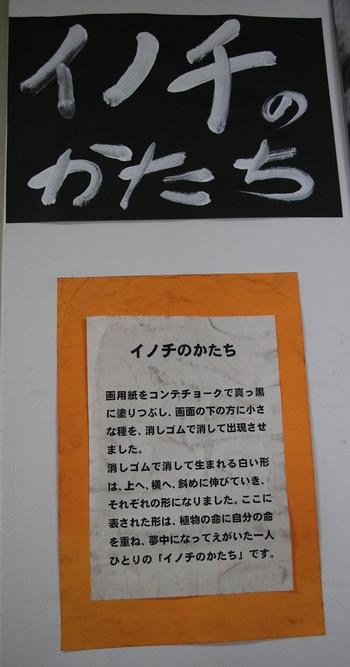 イノチの
かたち
イノチのかたち
画用紙をコンテチョークで真っ黒
に塗りつぶし、画面の下の方に小さ
な種を、消しゴムで消して出現させ
ました。
消しゴムで消して生まれる白い形
は、上へ、横へ、斜めに伸びていき、
それぞれの形になりました。ここに
表された形は、植物の命に自分の命
を重ね、夢中になってえがいた一人
ひとりの「イノチのかたち」です。